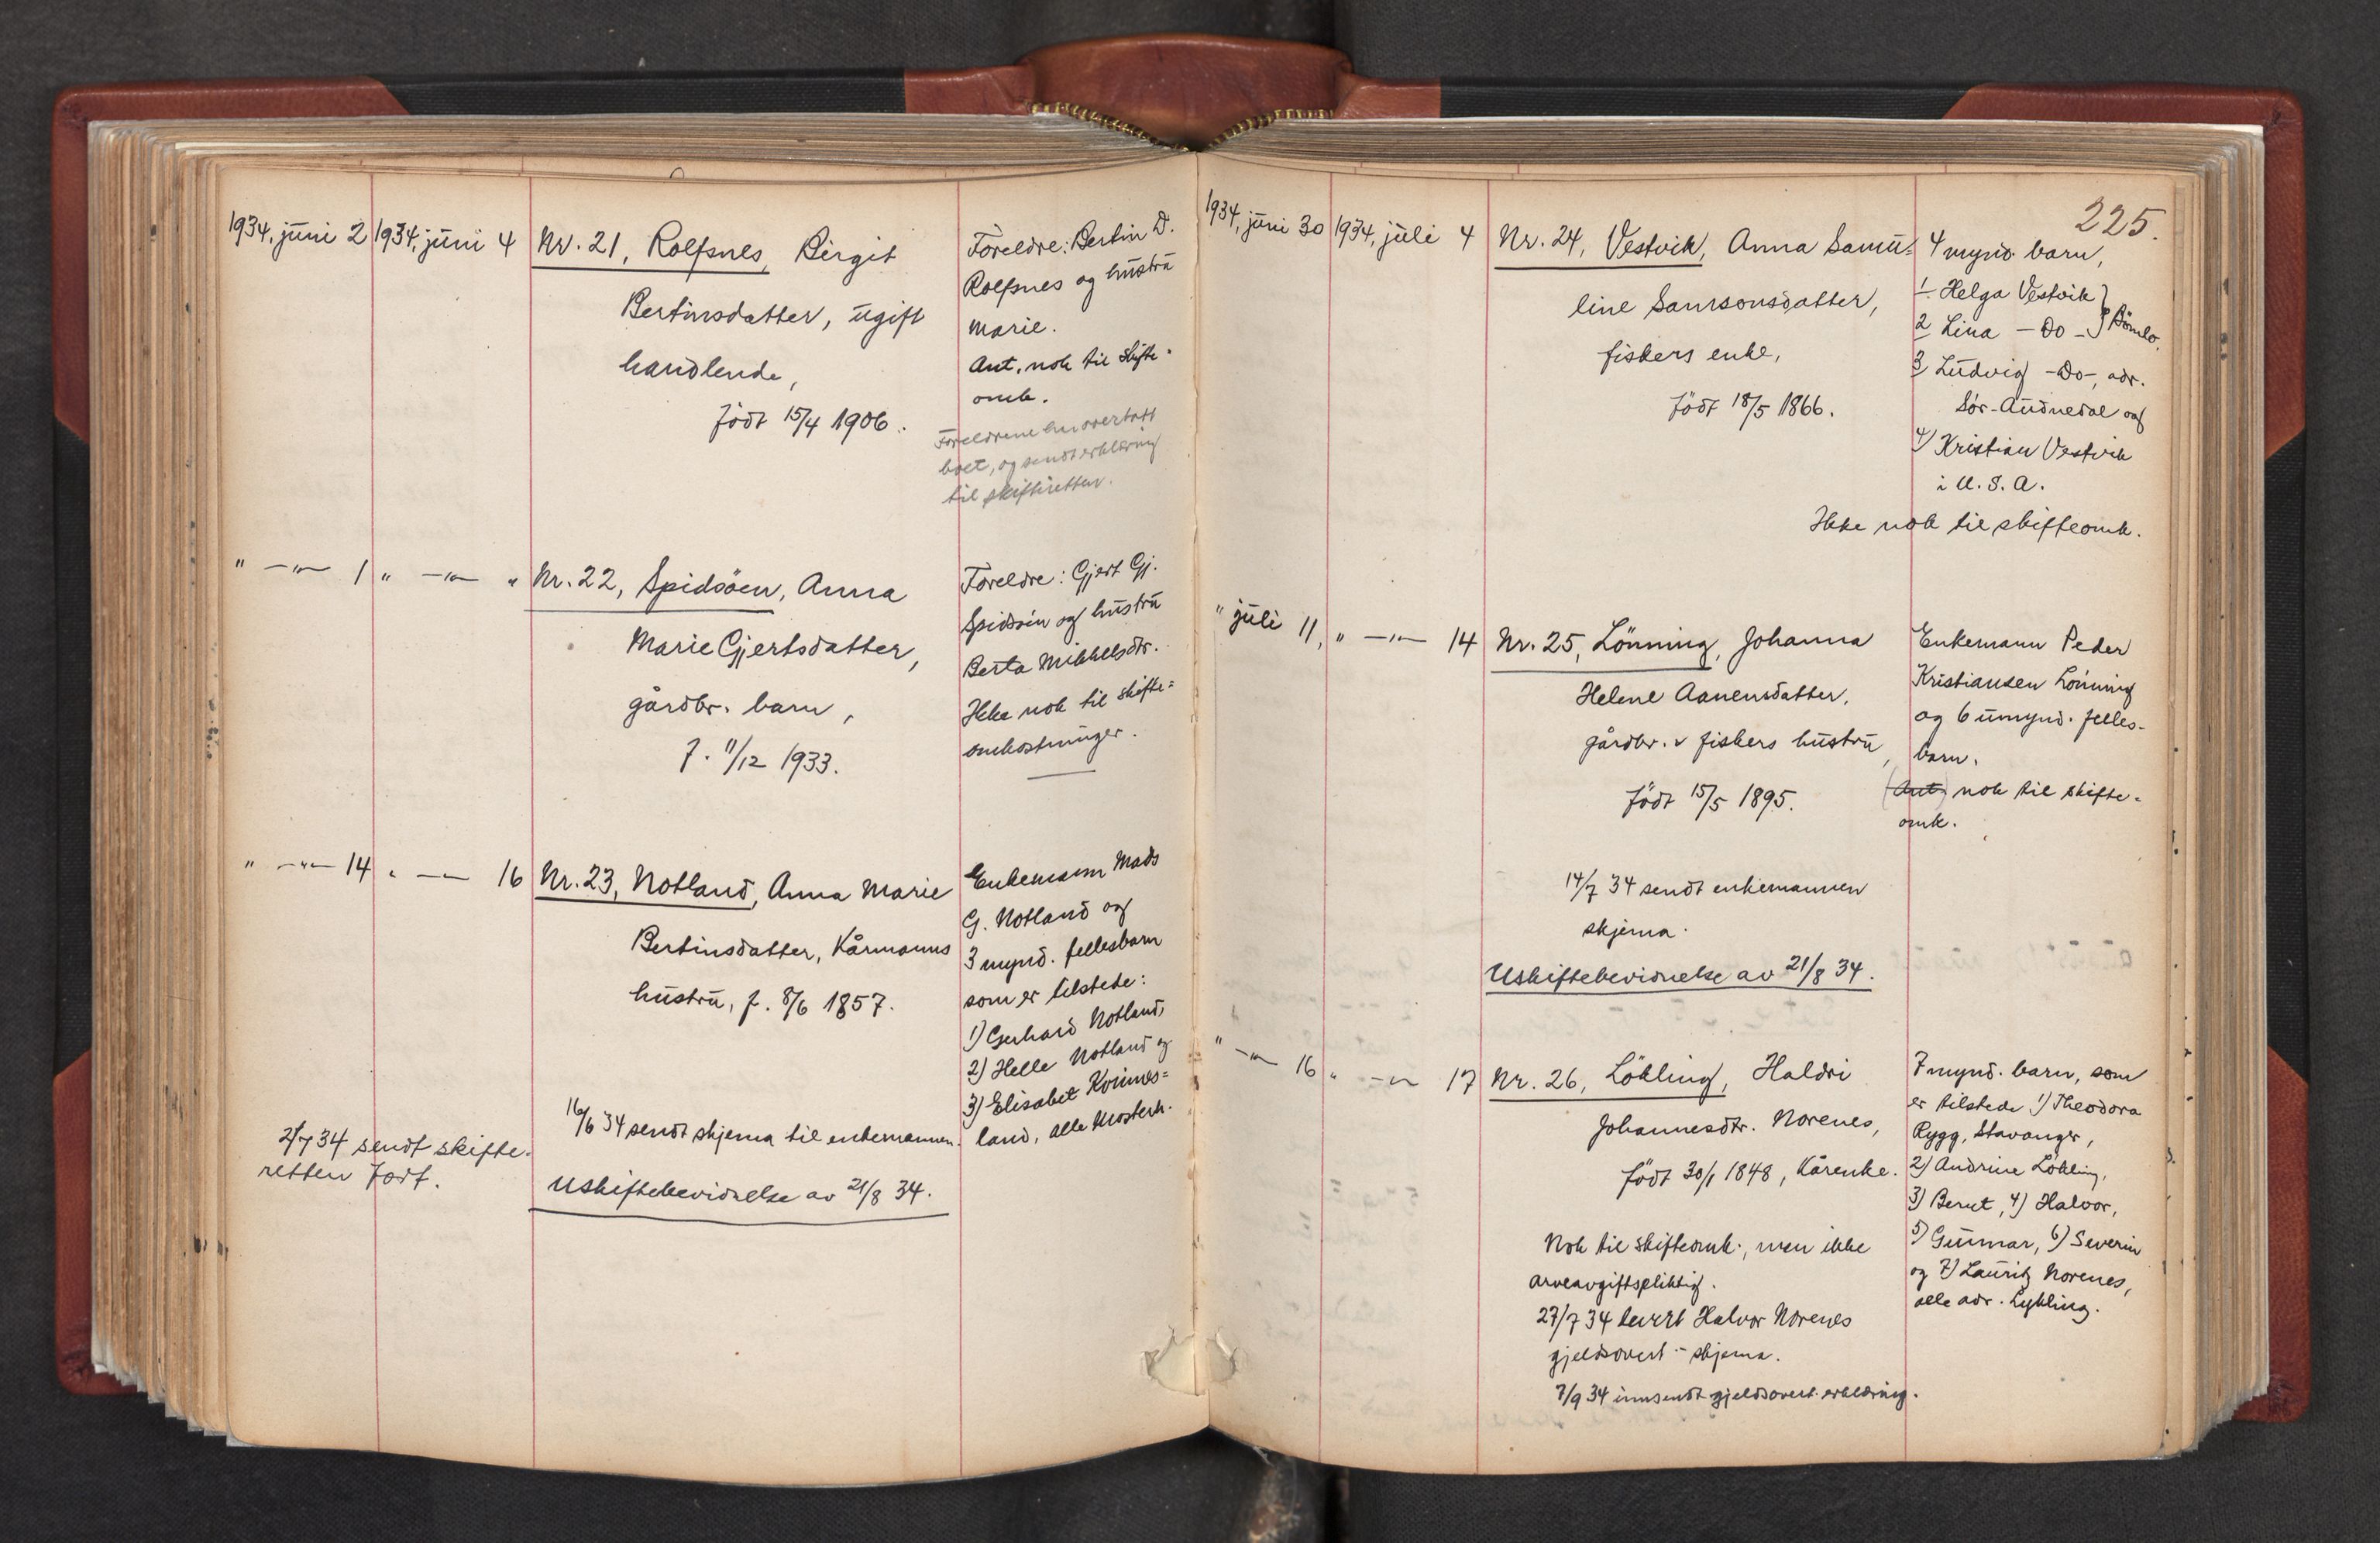 1934, juni 2 1934, juni 4 Nr. 21, Rolfsnes, Birgit
Bertinsdatter, ugift
handlende,
født 15/4 1906.
Foreldre: Bertin D.
Rolfsnes og hustru
Marie.
Ant. nok til skifte-
omk.
Foreldrene har overtatt
boet, og sendt erklæring
til skifteretten.
" —"— 1 " —"— " Nr. 22, Spidsöen, Anna
Marie Gjertsdatter,
gårdbr. barn,
f. 11/12 1933.
Foreldre: Gjert Gj.
Spidsöen og hustru
Berta Mikkelsdtr.
Ikke nok til skifte=
omkostninger.
" —"— 14 " —"— 16 Nr. 23, Notland, Anna Marie
Bertinsdatter, Kårmanns
hustru, f. 8/6 1857.
Enkemann Mads
G. Notland og
3 mynd. fellesbarn
som er tilstede:
1) Gerhard Notland,
2) Helle Notland og
3) Elisabet
land, alle Mosterh.
16/6 34 sendt skjema til enkemannen.
2/7 34 sendt skifte-
retten
Uskiftebevidnelse av 21/8 34.
225.
1934, juni 30 1934, juli 4 Nr. 24, Vestvik, Anna Samu=
line Samsonsdatter,
fiskers enke,
født 18/5 1866.
4 mynd. barn,
1. Helga Vestvik }
2 Lina — Do — } Bömlo.
3 Ludvig — Do —, adr.
Sör-Audnedal og
4) Kristian Vestvik
i U.S.A.
Ikke nok til skifteomk.
" juli 11, " —"— 14 Nr. 25, Lönning, Johanna
Helene Aanensdatter,
gårdbr. v fiskers hustru,
født 15/5 1895.
Enkemann Peder
Kristiansen Lönning
og 6 umynd. felles-
barn.
(Ant.) nok til skifte-
omk.
14/7 34 sendt enkemannen
skjema.
Uskiftebevidnelse av 21/8 34.
" —"— 16 " —"— 17 Nr. 26, Lökling, Haldri
Johannesdtr. Norenes,
født 30/1 1848, Kårenke.
7 mynd. barn, som
er tilstede 1) Theodora
Rygg, Stavanger,
2) Andrine Lökling,
3) Bernt, 4) Halvor,
5) Gunnar, 6) Severin
og 7) Lauritz Norenes,
alle adr. Lykling.
Nok til skifteomk., men ikke
arveavgiftspliktig.
27/7 34 levert Halvor Norenes
gjeldsovert.-skjema.
7/9 34 innsendt gjeldsovert. erklæring.